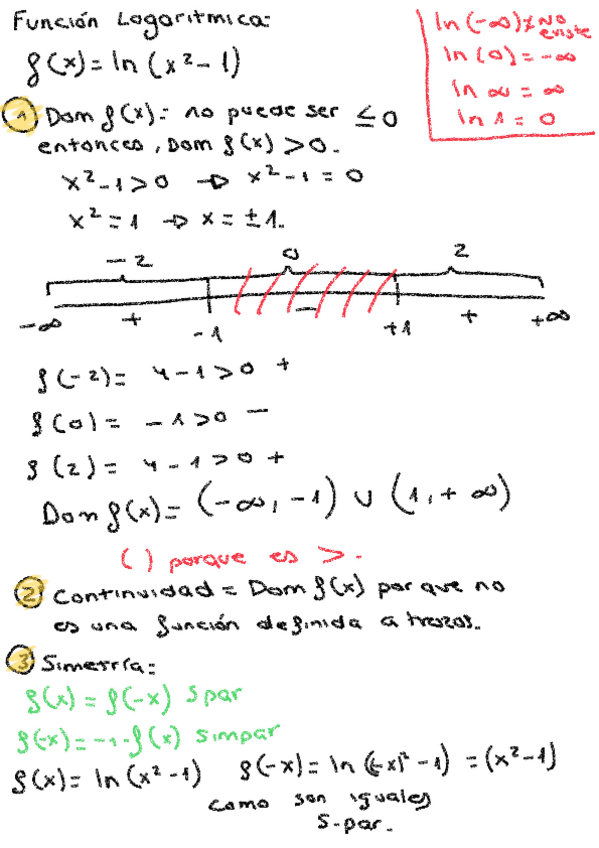 Función Logarítmica:
f(x) = ln (x² - 1)
ln (-∞) x No existe
ln (0) = -∞
ln ∞ = ∞
ln 1 = 0
1 Dom f(x): no puede ser ≤ 0
entonces, Dom f(x) > 0.
x² - 1 > 0 → x² - 1 = 0
x² = 1 → x = ± 1.
-2 0 2
-∞ + -1 - +1 + +∞
f(-2) = 4 - 1 > 0 +
f(0) = -1 > 0 -
f(2) = 4 - 1 > 0 +
Dom f(x) = (-∞, -1) ∪ (1, +∞)
( ) porque es >.
2 Continuidad = Dom f(x) porque no
es una función definida a trozos.
3 Simetría:
f(x) = f(-x) Spar
f(-x) = -1·f(x) Simpar
f(x) = ln (x² - 1) f(-x) = ln ((-x)² - 1) = (x² - 1)
como son iguales
S-par.